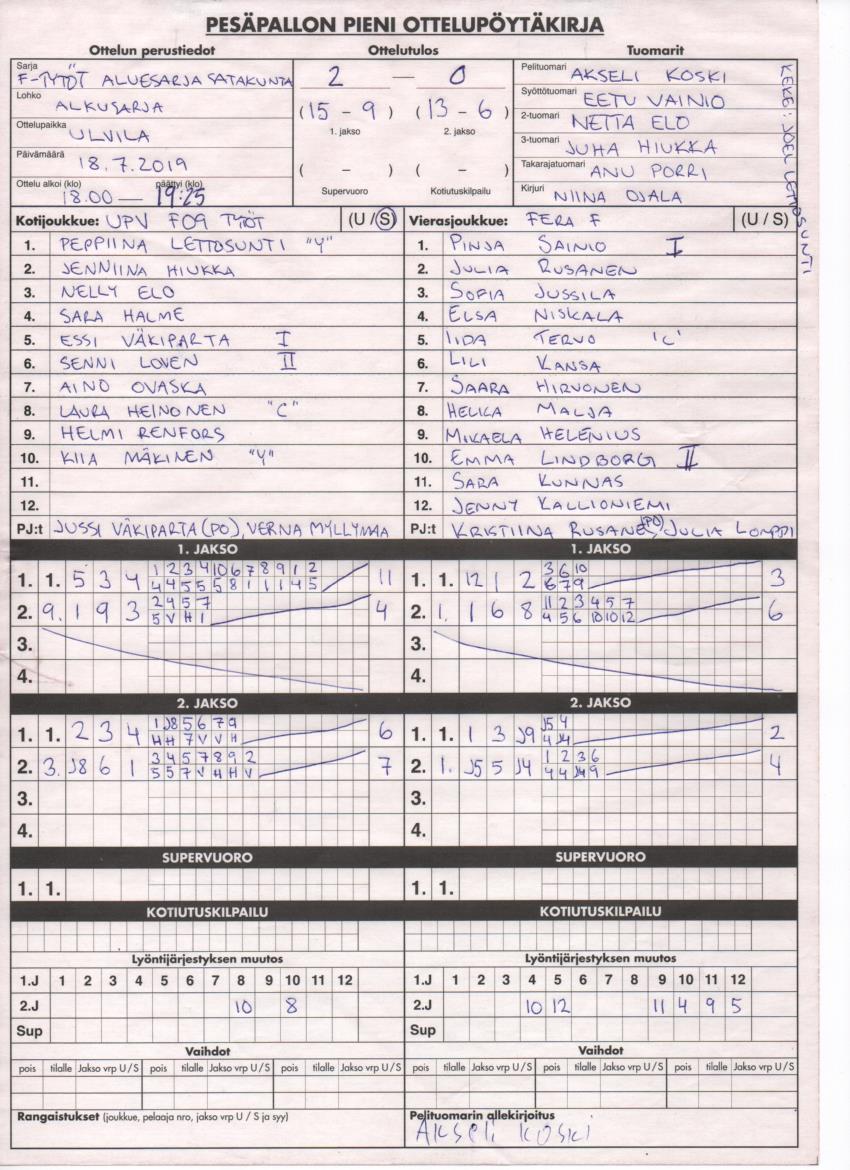 PESÄPALLON PIENI OTTELUPÖYTÄKIRJA
Ottelun perustiedot
Sarja F-TYTÖT ALUESARJA SATAKUNTA
Lohko ALKUSARJA
Ottelupaikka ULVILA
Päivämäärä 18.7.2019
Ottelu alkoi (klo) päättyi (klo)
18.00 — 19:25
Ottelutulos
2 — 0
(15 - 9) (13 - 6)
1. jakso 2. jakso
( - ) ( - )
Supervuoro Kotiutuskilpailu
Tuomarit
Pelituomari AKSELI KOSKI
Syöttötuomari EETU VAINIO
2-tuomari NETTA ELO
3-tuomari JUHA HIUKKA
Takarajatuomari ANU PORRI
Kirjuri NIINA OJALA
KEKE: JOEL LETTOSUNTI
Kotijoukkue: UPV F09 TYTÖT (U / S)
1. PEPPIINA LETTOSUNTI "Y"
2. JENNIINA HIUKKA
3. NELLY ELO
4. SARA HALME
5. ESSI VÄKIPARTA I
6. SENNI LOVEN II
7. AINO OVASKA
8. LAURA HEINONEN "C"
9. HELMI RENFORS
10. KIIA MÄKINEN "Y"
11.
12.
PJ:t JUSSI VÄKIPARTA (PO), VERNA MYLLYMAA
Vierasjoukkue: FERA F (U / S)
1. PINJA SAINIO I
2. JULIA RUSANEN
3. SOFIA JUSSILA
4. ELSA NISKALA
5. IIDA TERVO 'C'
6. LILI KANSA
7. SAARA HIRVONEN
8. HELKA MALJA
9. MIKAELA HELENIUS
10. EMMA LINDBORG II
11. SARA KUNNAS
12. JENNY KALLIONIEMI
PJ:t KRISTIINA RUSANEN (PO), JULIA LOMPPI
1. JAKSO
1. 1. 5 3 4 1 2 3 4 10 6 7 8 9 1 2 11
4 4 5 5 5 8 1 1 1 4 5
2. 9. 1 9 3 2 4 5 7 4
5 V H 1
3.
4.
1. JAKSO
1. 1. 12 1 2 3 6 10 3
6 7 9
2. 1. 1 6 8 11 2 3 4 5 7 6
4 5 6 10 10 12
3.
4.
2. JAKSO
1. 1. 2 3 4 1 J8 5 6 7 9 6
H H 7 V V H
2. 3. J8 6 1 3 4 5 7 8 9 2 7
5 5 7 V H H V
3.
4.
2. JAKSO
1. 1. 1 3 J9 J5 4 2
4 J4
2. 1. J5 5 J4 1 2 3 6 4
4 4 J4 9
3.
4.
SUPERVUORO
1. 1.
SUPERVUORO
1. 1.
KOTIUTUSKILPAILU
KOTIUTUSKILPAILU
Lyöntijärjestyksen muutos
1.J 1 2 3 4 5 6 7 8 9 10 11 12
2.J 10 8
Sup
Lyöntijärjestyksen muutos
1.J 1 2 3 4 5 6 7 8 9 10 11 12
2.J 10 12 11 4 9 5
Sup
Vaihdot
pois tilalle Jakso vrp U / S pois tilalle Jakso vrp U / S pois tilalle Jakso vrp U / S
Vaihdot
pois tilalle Jakso vrp U / S pois tilalle Jakso vrp U / S pois tilalle Jakso vrp U / S
Rangaistukset (joukkue, pelaaja nro, jakso vrp U / S ja syy)
Pelituomarin allekirjoitus
Akseli Koski